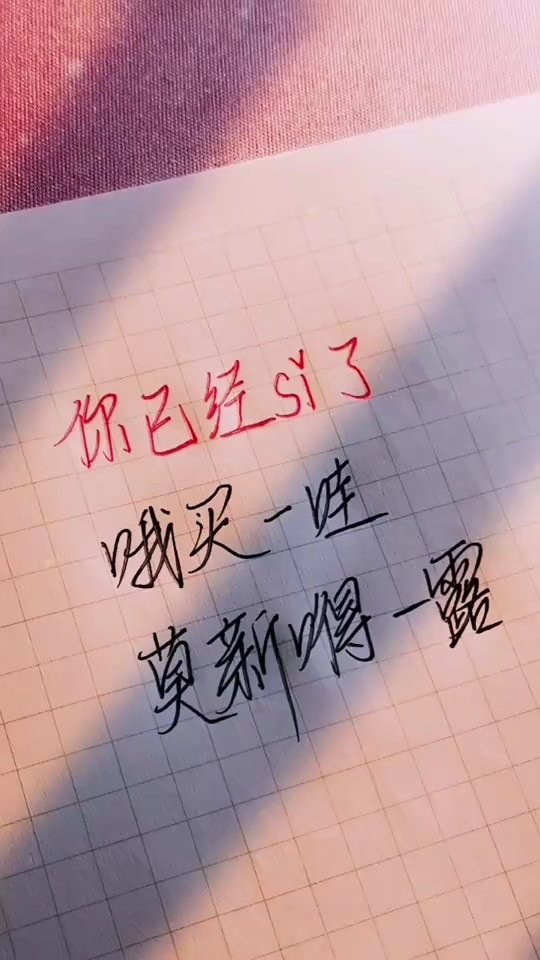 你已经sǐ了
哦买一哇
莫新嘚一露